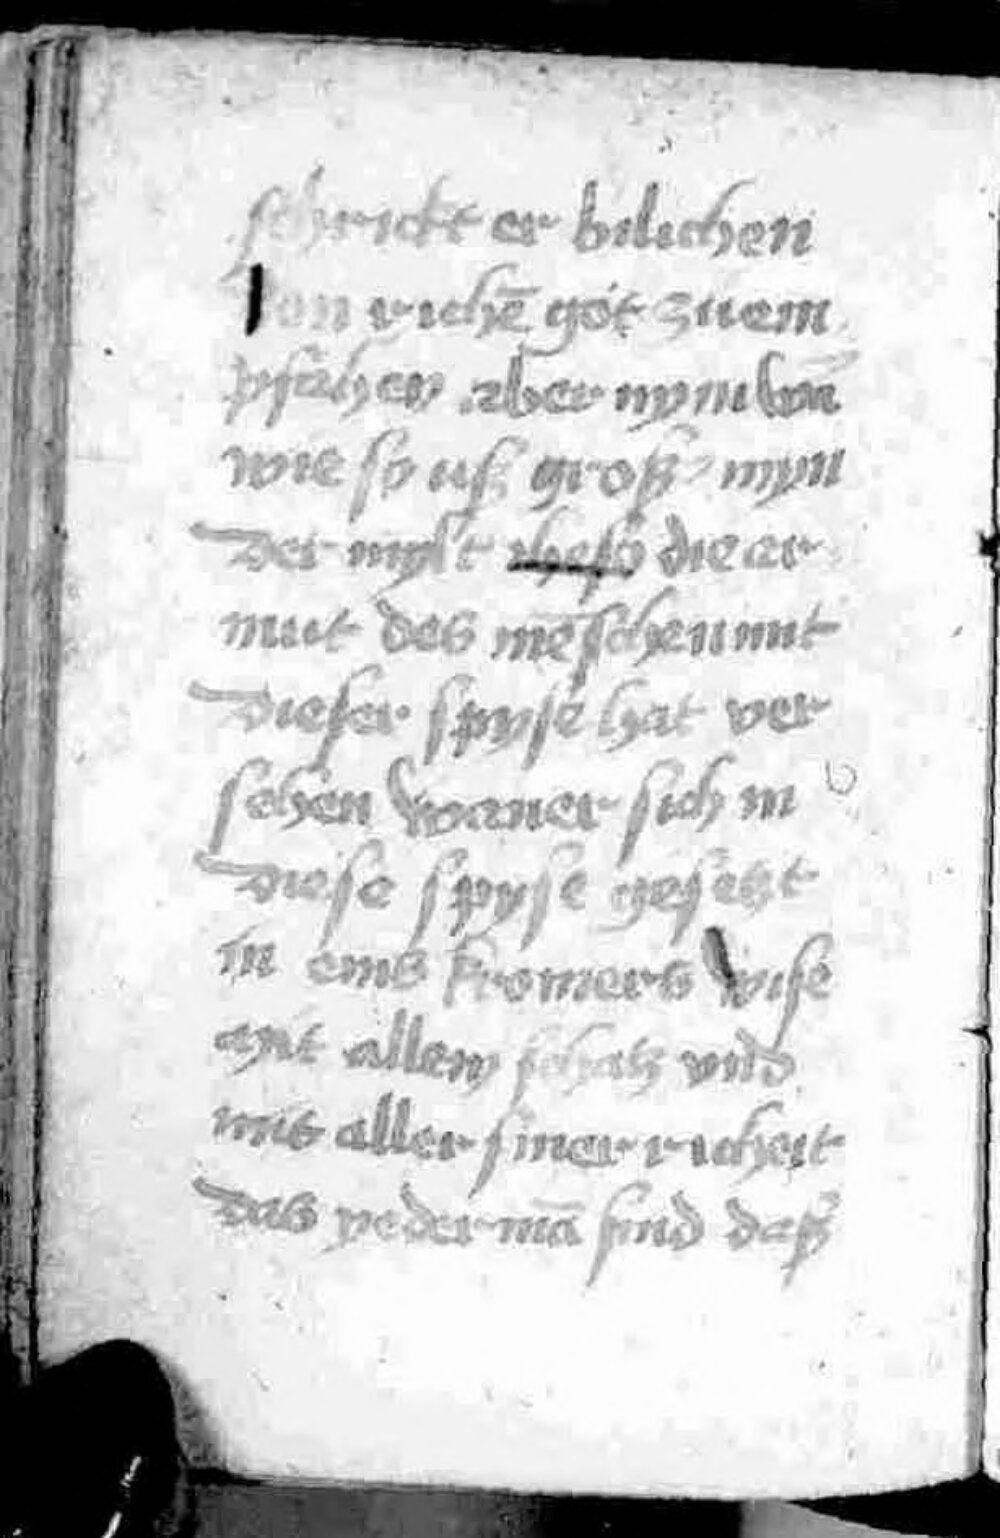 schrickt er bilichen
Den richē got zu em
pfahen aber nym war
wie so uß großer myn
Der mylt ihesus die ar
mut des mēschen mit
Dieser spyse hat ver
sehen wan er sich in
Diese spyse gesetzt
in eins kromers wise
mit allem schatz vnd
mit aller siner richeit
Das yedermā find deß